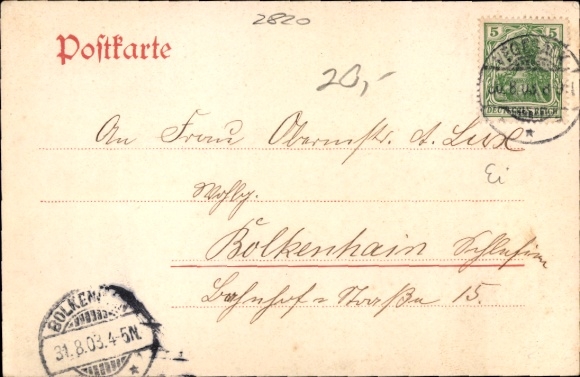 2820
Postkarte
5 5
VEGESACK
30.8.03
DEUTSCHES REICH
20,-
An Frau Obermstr. A. Lux
Ei
Wohlg.
Bolkenhain Schlesien
Bahnhof-Straße 15.
BOLKENHAIN
31.8.03.4-5N.